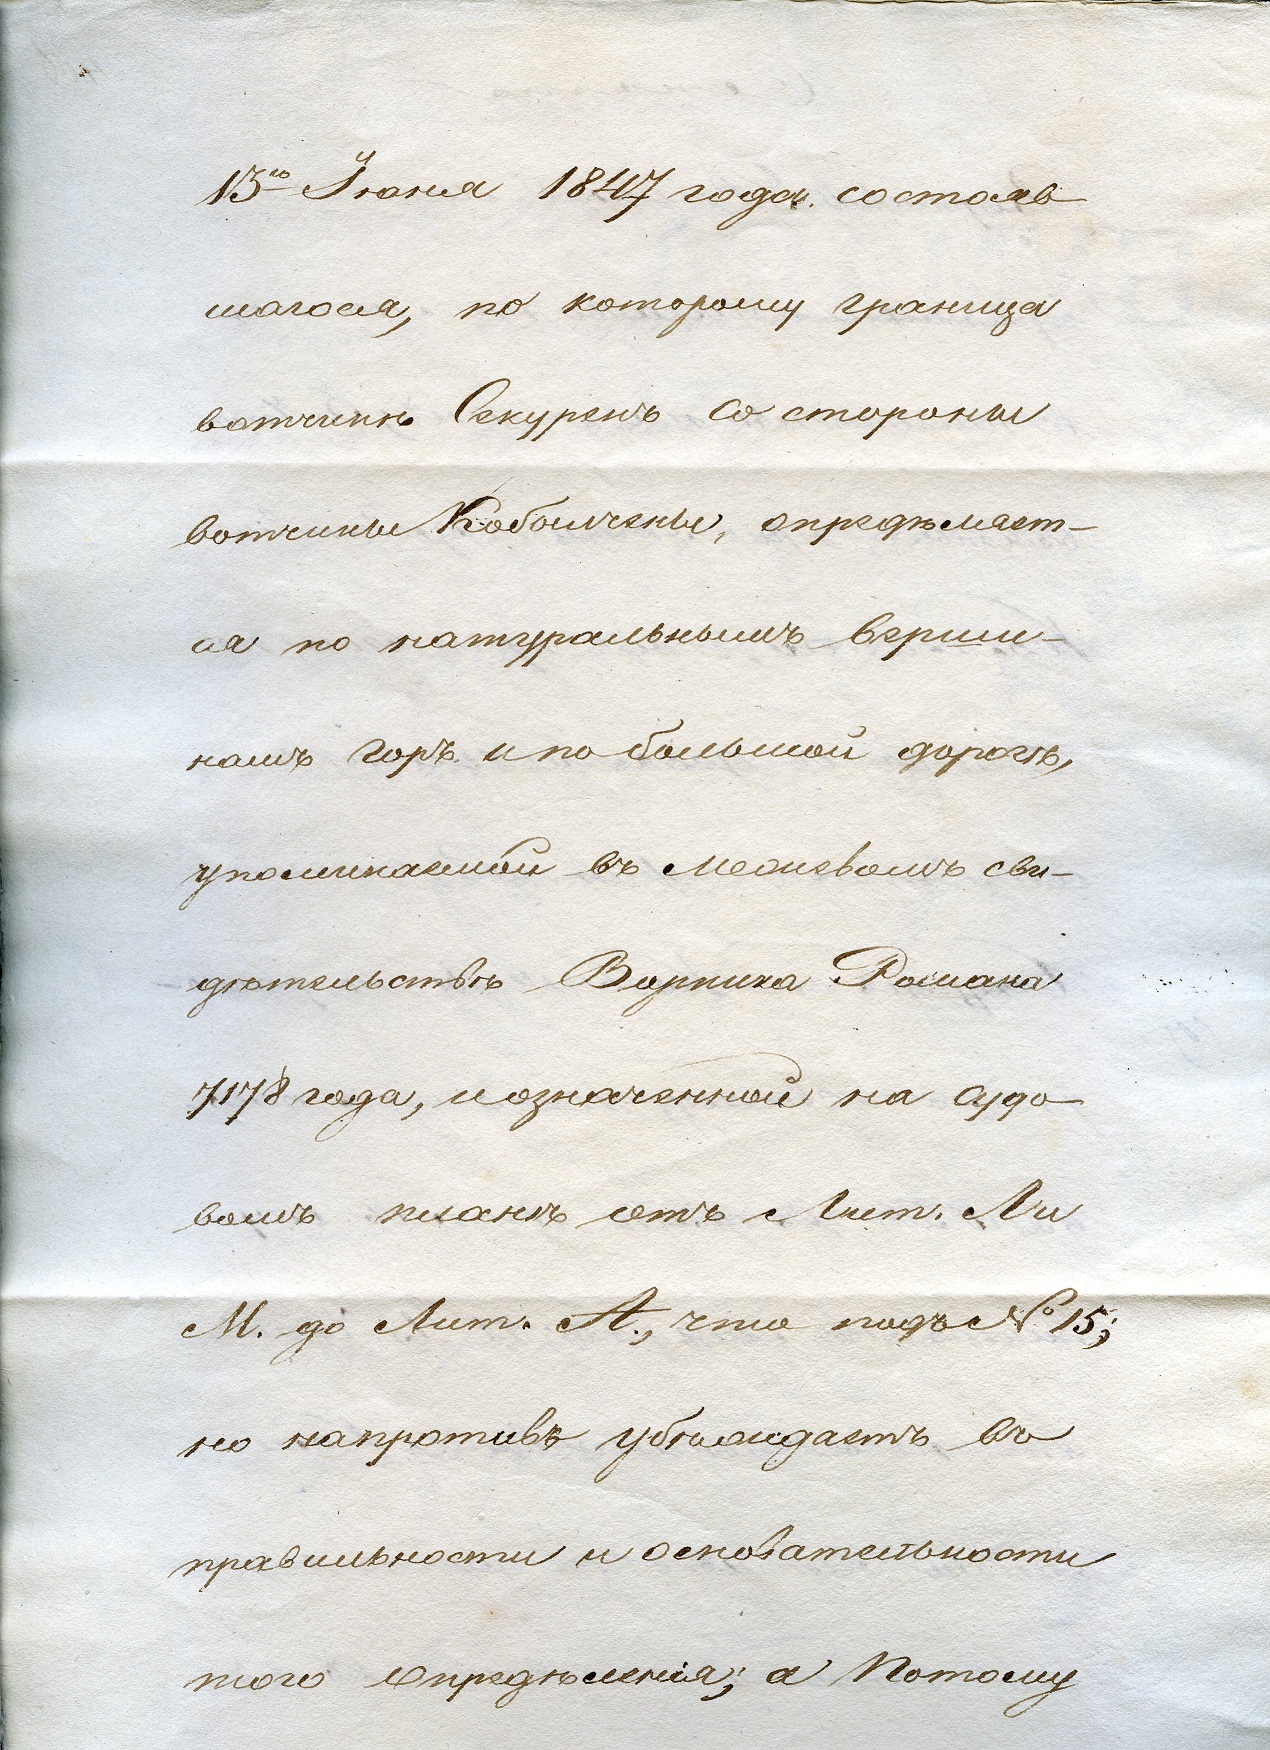 13го Іюня 1847 года состояв
шагося, по которому граница
вотчинъ Секурень со стороны
вотчины Кобылчены, опредѣляет-
ся по натуральнымъ верши-
намъ горъ и по большой дорогѣ,
упоминаемой въ межевомъ сви-
дѣтельствѣ Ворника Романа
7178 года, и означенной на судо
вомъ планѣ отъ Лит. Л и
М. до Лит. А., что подъ № 15;
но напротивъ убѣждаетъ въ
правильности и основательности
того опредѣленія; а потому